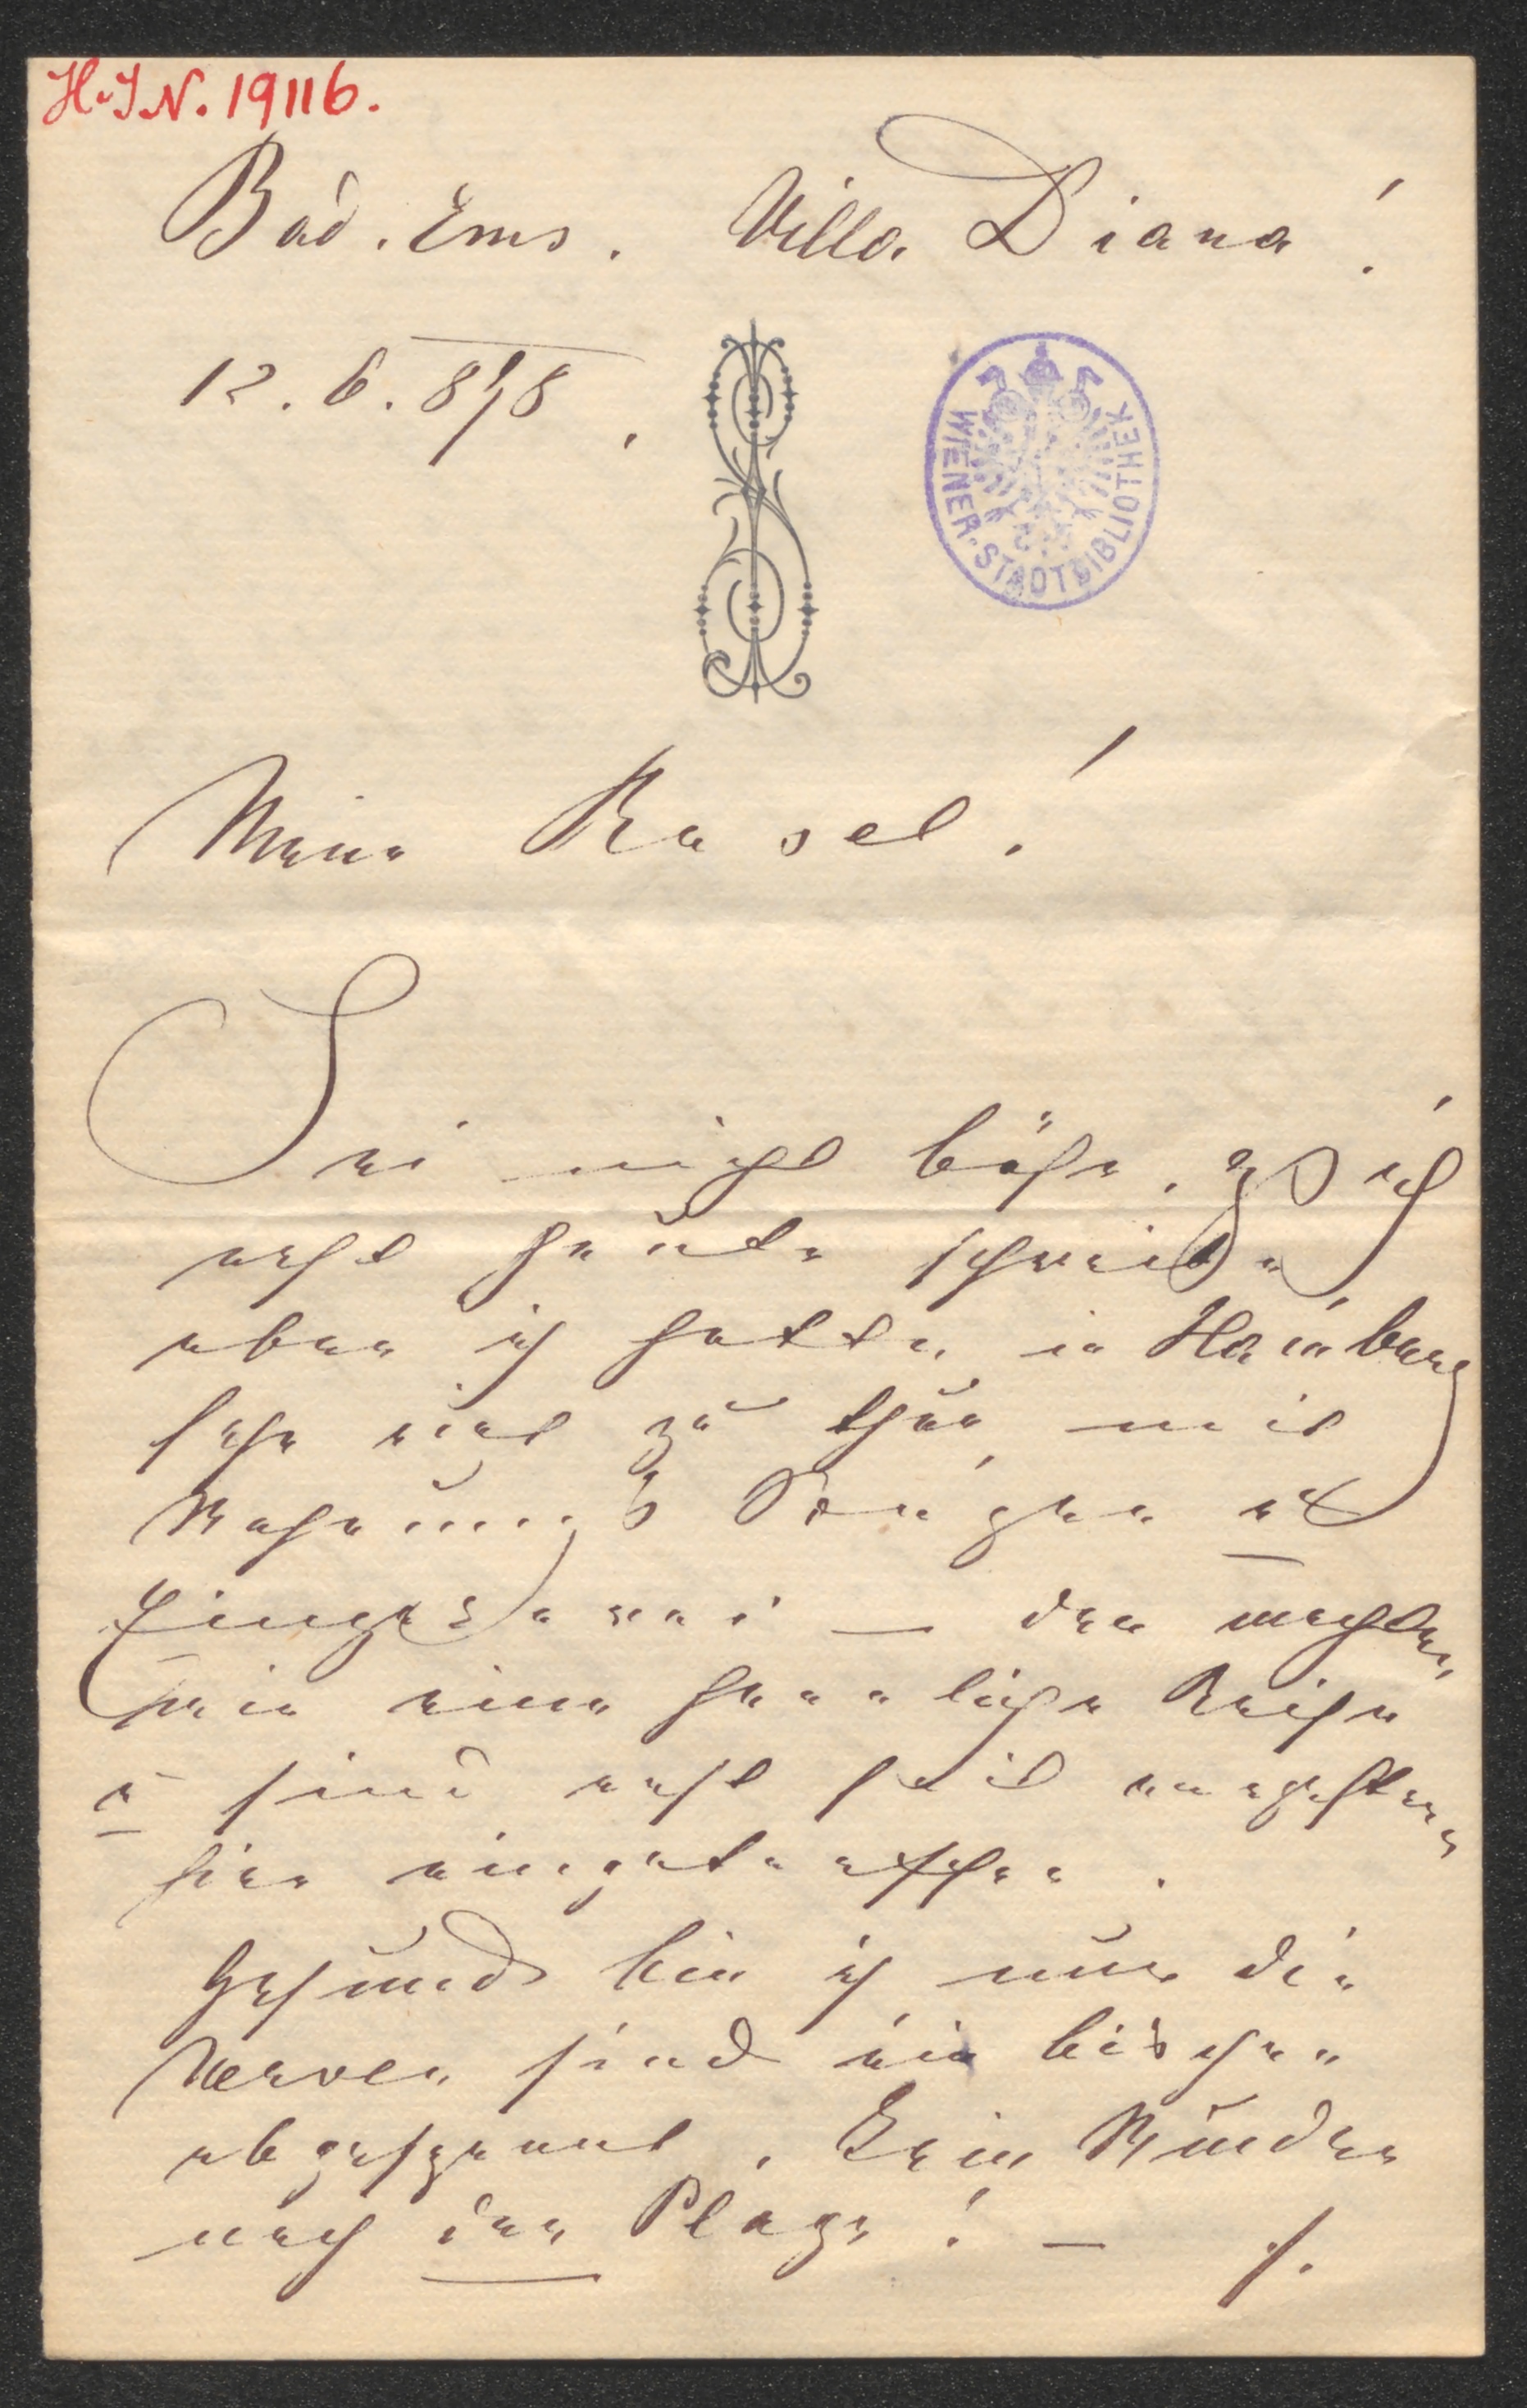 H.I.N. 19116.
Bad. Ems. Villa Diana!
12. 6. 878.
WIENER-STADTBIBLIOTHEK
Meine Rosel!
Sei nicht böse, daß ich
erst heute schreibe
aber ich hatte in Hamburg
sehr viel zu thun mit
der machten
wir eine herrliche Reise
u sind erst seit vorgestern
hier eingetroffen.
Gesund bin ich nur die
Nerven sind ein bischen
abgespannt. Kein Wunder
nach der Plage! — /.